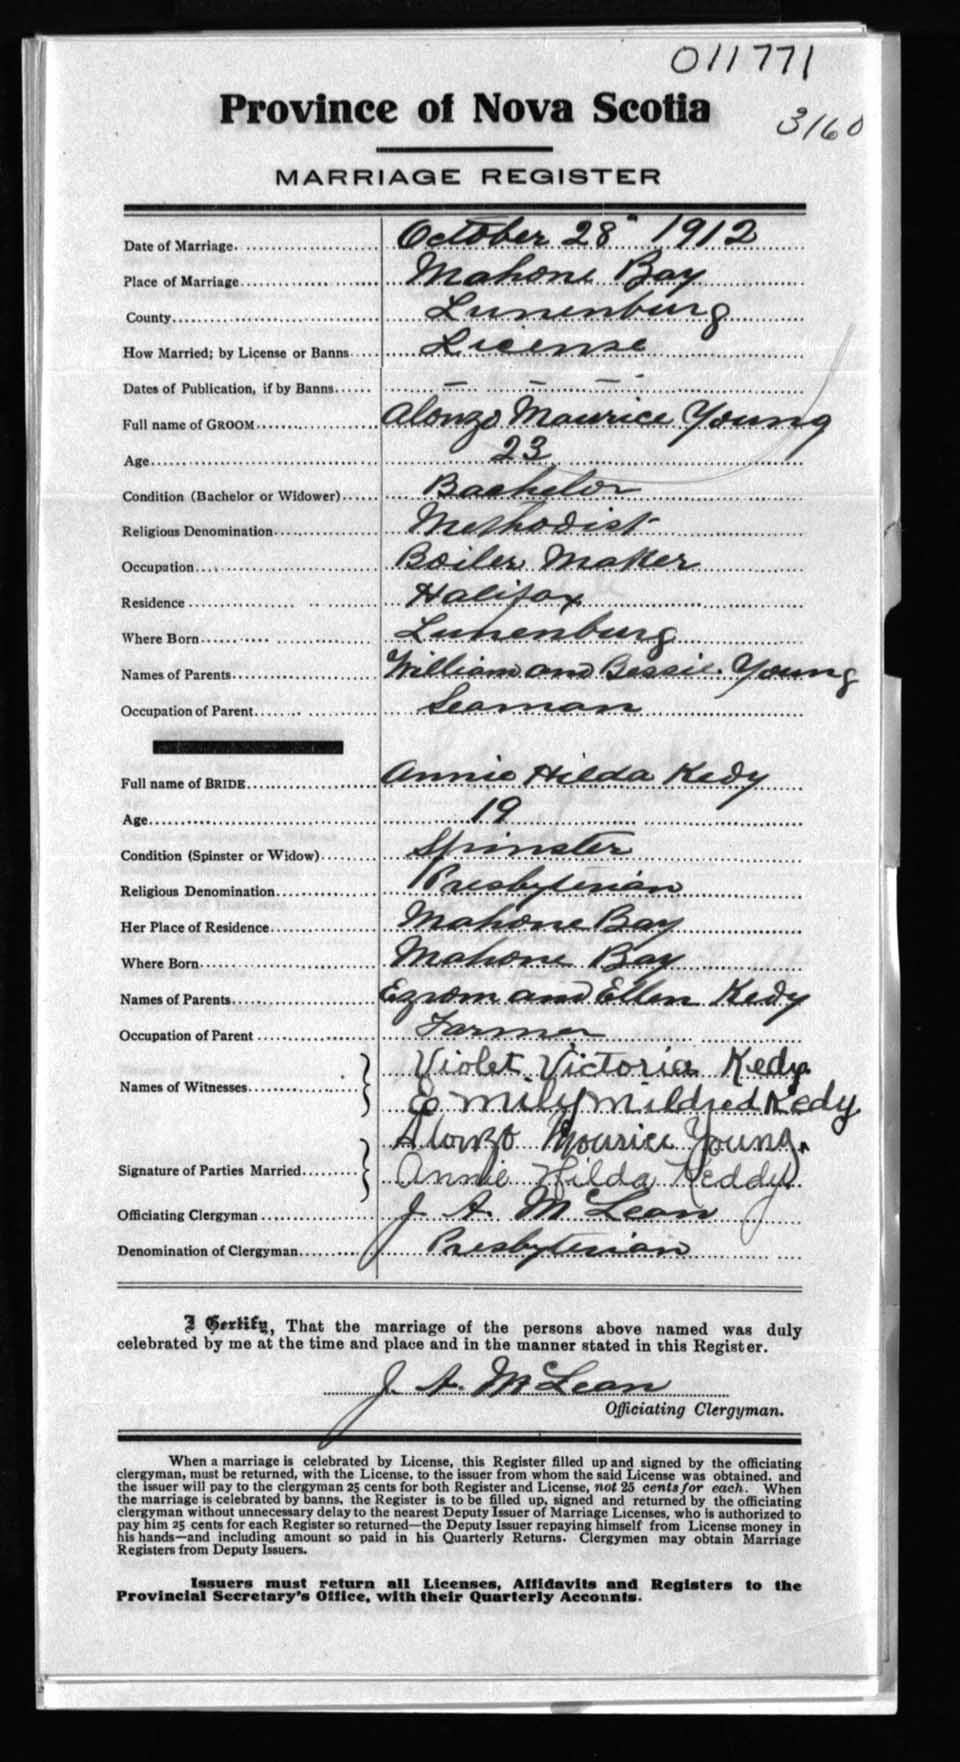 011771
Province of Nova Scotia
3160
MARRIAGE REGISTER
Date of Marriage October 28" 1912
Place of Marriage Mahone Bay
County Lunenburg
How Married; by License or Banns License
Dates of Publication, if by Banns – – –
Full name of GROOM Alonzo Maurice Young
Age 23
Condition (Bachelor or Widower) Bachelor
Religious Denomination Methodist
Occupation Boiler Maker
Residence Halifax
Where Born Lunenburg
Names of Parents William and Bessie Young
Occupation of Parent Seaman
Full name of BRIDE Annie Hilda Kedy
Age 19
Condition (Spinster or Widow) Spinster
Religious Denomination Presbyterian
Her Place of Residence Mahone Bay
Where Born Mahone Bay
Names of Parents Ezrom and Ellen Kedy
Occupation of Parent Farmer
Violet Victoria Kedy
Names of Witnesses
Emily Mildred Kedy
Alonzo Mourice Young
Signature of Parties Married
Annie Hilda Keddy
Officiating Clergyman J. A. McLean
Denomination of Clergyman Presbyterian
I Certify, That the marriage of the persons above named was duly
celebrated by me at the time and place and in the manner stated in this Register.
J. A. McLean
Officiating Clergyman.
When a marriage is celebrated by License, this Register filled up and signed by the officiating
clergyman, must be returned, with the License, to the issuer from whom the said License was obtained, and
the issuer will pay to the clergyman 25 cents for both Register and License, not 25 cents for each. When
the marriage is celebrated by banns, the Register is to be filled up, signed and returned by the officiating
clergyman without unnecessary delay to the nearest Deputy Issuer of Marriage Licenses, who is authorized to
pay him 25 cents for each Register so returned—the Deputy Issuer repaying himself from License money in
his hands—and including amount so paid in his Quarterly Returns. Clergymen may obtain Marriage
Registers from Deputy Issuers.
Issuers must return all Licenses, Affidavits and Registers to the
Provincial Secretary's Office, with their Quarterly Accounts.